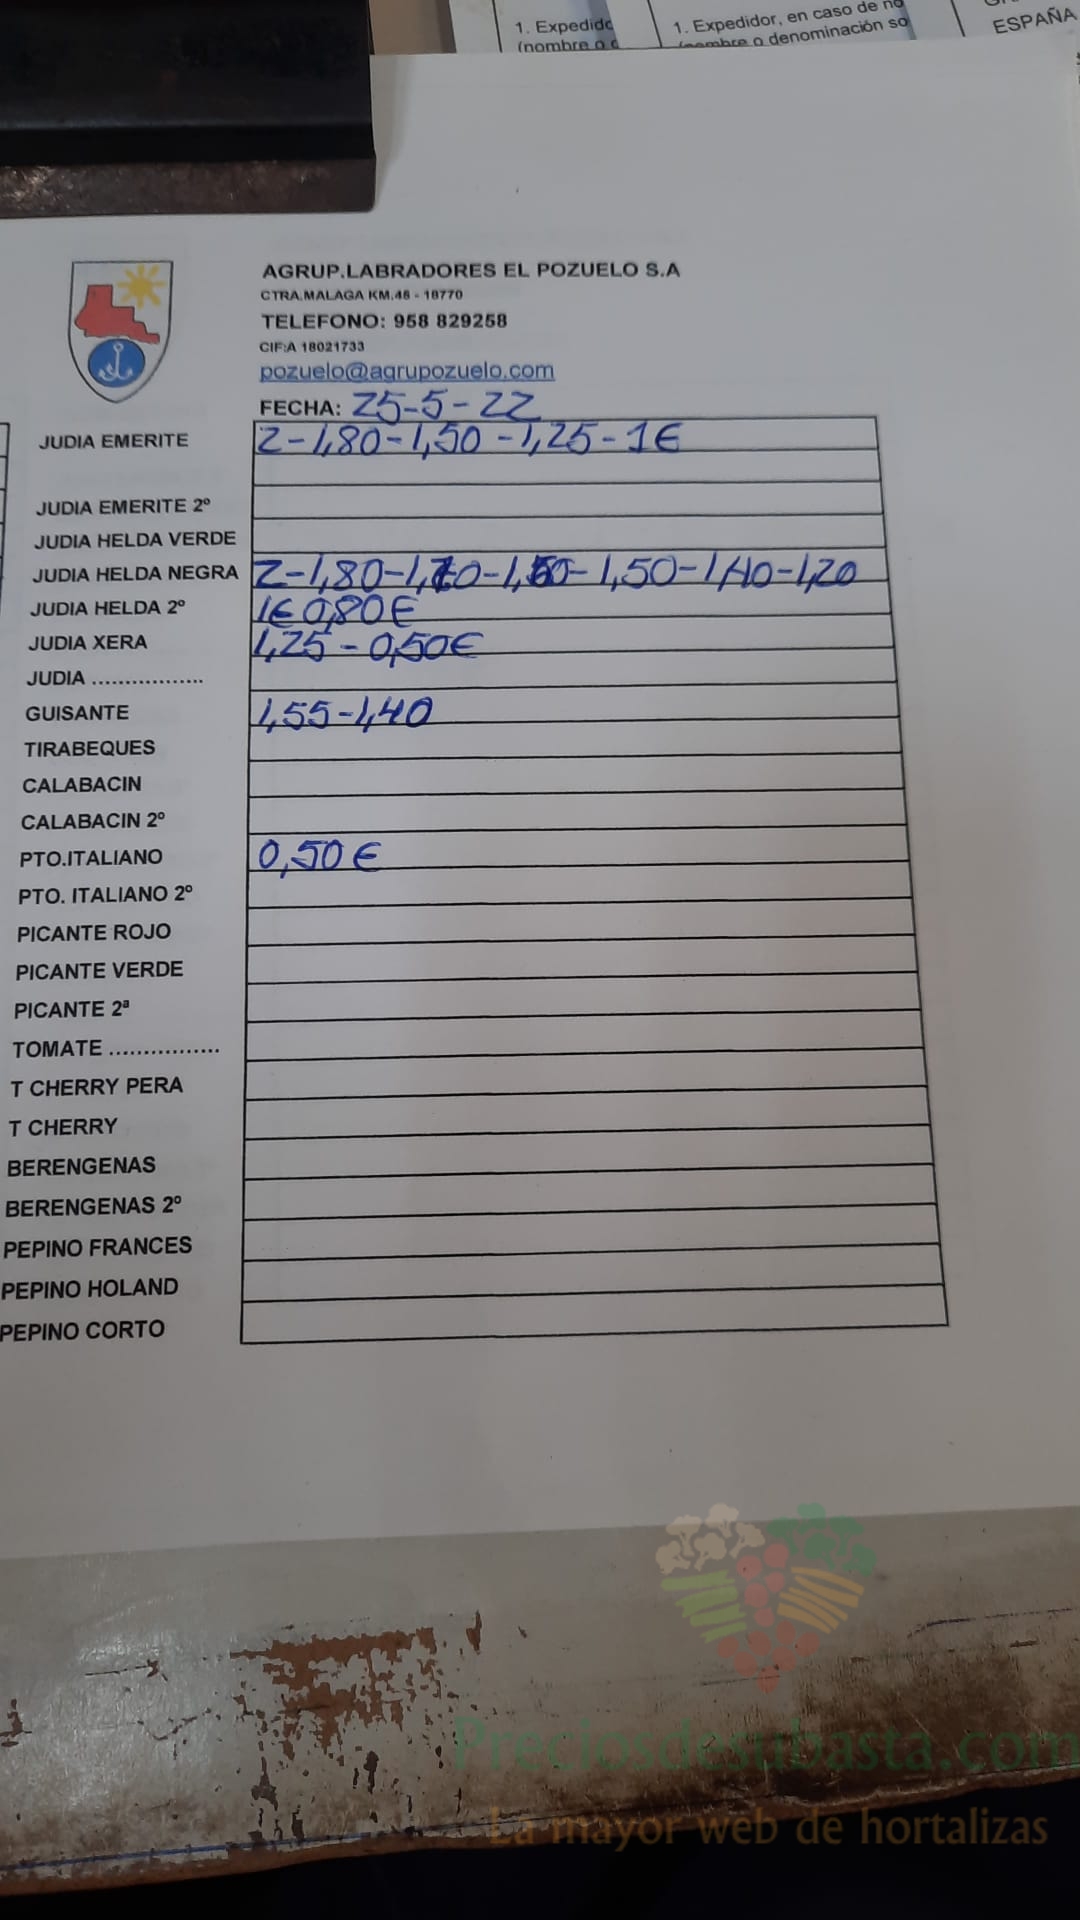 1. Expedido
(nombre o d
1. Expedidor, en caso de no
(nombre o denominación so
ESPAÑA
AGRUP.LABRADORES EL POZUELO S.A
CTRA.MALAGA KM.46 - 18770
TELEFONO: 958 829258
CIF:A 18021733
pozuelo@agrupozuelo.com
FECHA: 25-5-22
JUDIA EMERITE 2-1,80-1,50-1,25-1€
JUDIA EMERITE 2º
JUDIA HELDA VERDE
JUDIA HELDA NEGRA 2-1,80-1,70-1,60-1,50-1,40-1,20
JUDIA HELDA 2º 1€ 0,80€
JUDIA XERA 1,25-0,50€
JUDIA .................
GUISANTE 1,55-1,40
TIRABEQUES
CALABACIN
CALABACIN 2º
PTO.ITALIANO 0,50€
PTO. ITALIANO 2º
PICANTE ROJO
PICANTE VERDE
PICANTE 2ª
TOMATE ................
T CHERRY PERA
T CHERRY
BERENGENAS
BERENGENAS 2º
PEPINO FRANCES
PEPINO HOLAND
PEPINO CORTO
Preciosdesubasta.com
La mayor web de hortalizas